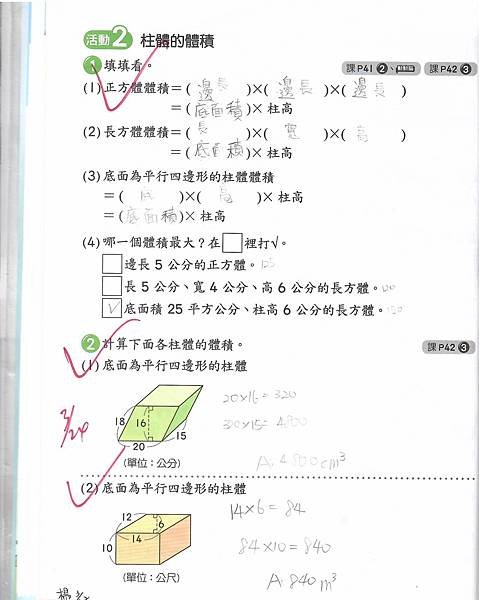 活動2 柱體的體積
1 填填看。 課P41 2、 課P42 3
(1)正方體體積=( 邊長 )×( 邊長 )×( 邊長 )
=( 底面積 )×柱高
(2)長方體體積=( 長 )×( 寬 )×( 高 )
=( 底面積 )×柱高
(3)底面為平行四邊形的柱體體積
=( 底 )×( 高 )×柱高
=( 底面積 )×柱高
(4)哪一個體積最大?在□裡打√。
□邊長 5 公分的正方體。 125
□長 5 公分、寬 4 公分、高 6 公分的長方體。 120
☑底面積 25 平方公分、柱高 6 公分的長方體。 150
2 計算下面各柱體的體積。 課P42 3
(1)底面為平行四邊形的柱體
20×16=320
18 16 15 20
300×15=4800
A:4800cm³
(單位:公分)
(2)底面為平行四邊形的柱體
12 6 14 10
14×6=84
84×10=840
(單位:公尺)
A:840m³